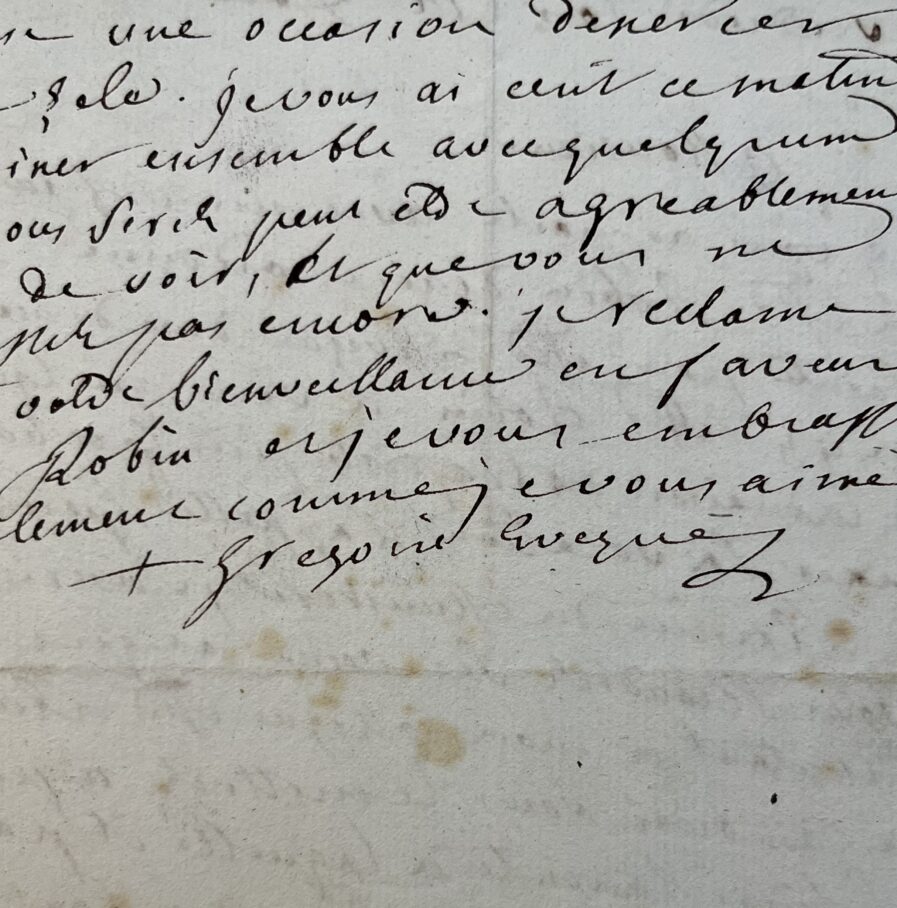 une occasion dexercer
zele. je vous ai ecrit ce matin
iner ensemble avec quelqun
ous serez peut etre agreablemen
de voir, et que vous ne
pas encore. je reclame
votre bienveillance en faveur
Robin et je vous embrasse
lement comme je vous aime
+ Gregoire Eveque